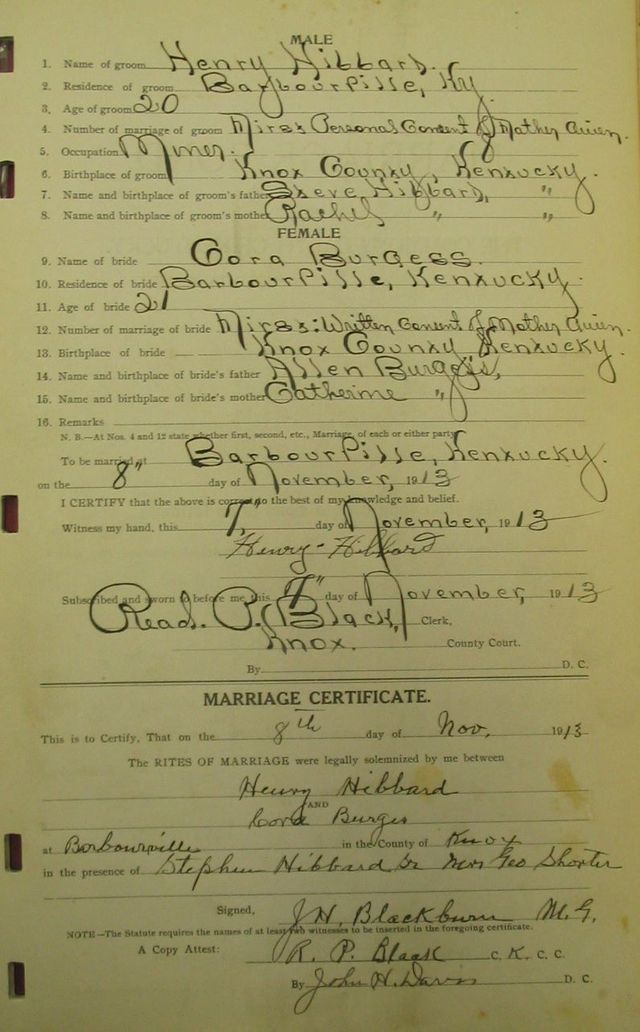 MALE
1. Name of groom Henry Hibbard.
2. Residence of groom Barbourville, Ky.
3. Age of groom 20
4. Number of marriage of groom First Personal Consent of Mother Given.
5. Occupation Miner.
6. Birthplace of groom Knox County, Kentucky.
7. Name and birthplace of groom's father Steve Hibbard, "
8. Name and birthplace of groom's mother Rachel " "
FEMALE
9. Name of bride Cora Burgess.
10. Residence of bride Barbourville, Kentucky.
11. Age of bride 21
12. Number of marriage of bride First: Written Consent of Mother Given.
13. Birthplace of bride Knox County, Kentucky.
14. Name and birthplace of bride's father Allen Burgess, "
15. Name and birthplace of bride's mother Catherine "
16. Remarks
N. B.—At Nos. 4 and 12 state whether first, second, etc., Marriage, of each or either party.
To be married at Barbourville, Kentucky.
on the 8" day of November, 1913
I CERTIFY that the above is correct to the best of my knowledge and belief.
Witness my hand, this 7" day of November, 1913
Henry Hibbard
Subscribed and sworn to before me, this 7" day of November, 1913
Read. P. Black, Clerk,
Knox. County Court.
By D. C.
MARRIAGE CERTIFICATE.
This is to Certify, That on the 8th day of Nov. 1913
The RITES OF MARRIAGE were legally solemnized by me between
Henry Hibbard
AND
Cora Burges
at Barbourville in the County of Knox
in the presence of Stephen Hibbard Sr Mrs Geo Shorter
Signed, J H. Blackburn M. G.
NOTE—The Statute requires the names of at least two witnesses to be inserted in the foregoing certificate.
A Copy Attest: R. P. Black C. K. C. C.
By John H. Davis D. C.